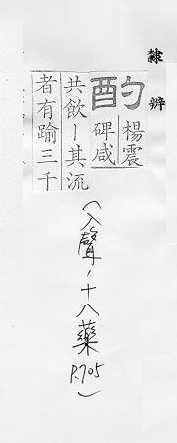 隸辨
酌
楊震
碑咸
共飲丨其流
者有踰三千
(入聲,十八藥
P.705)